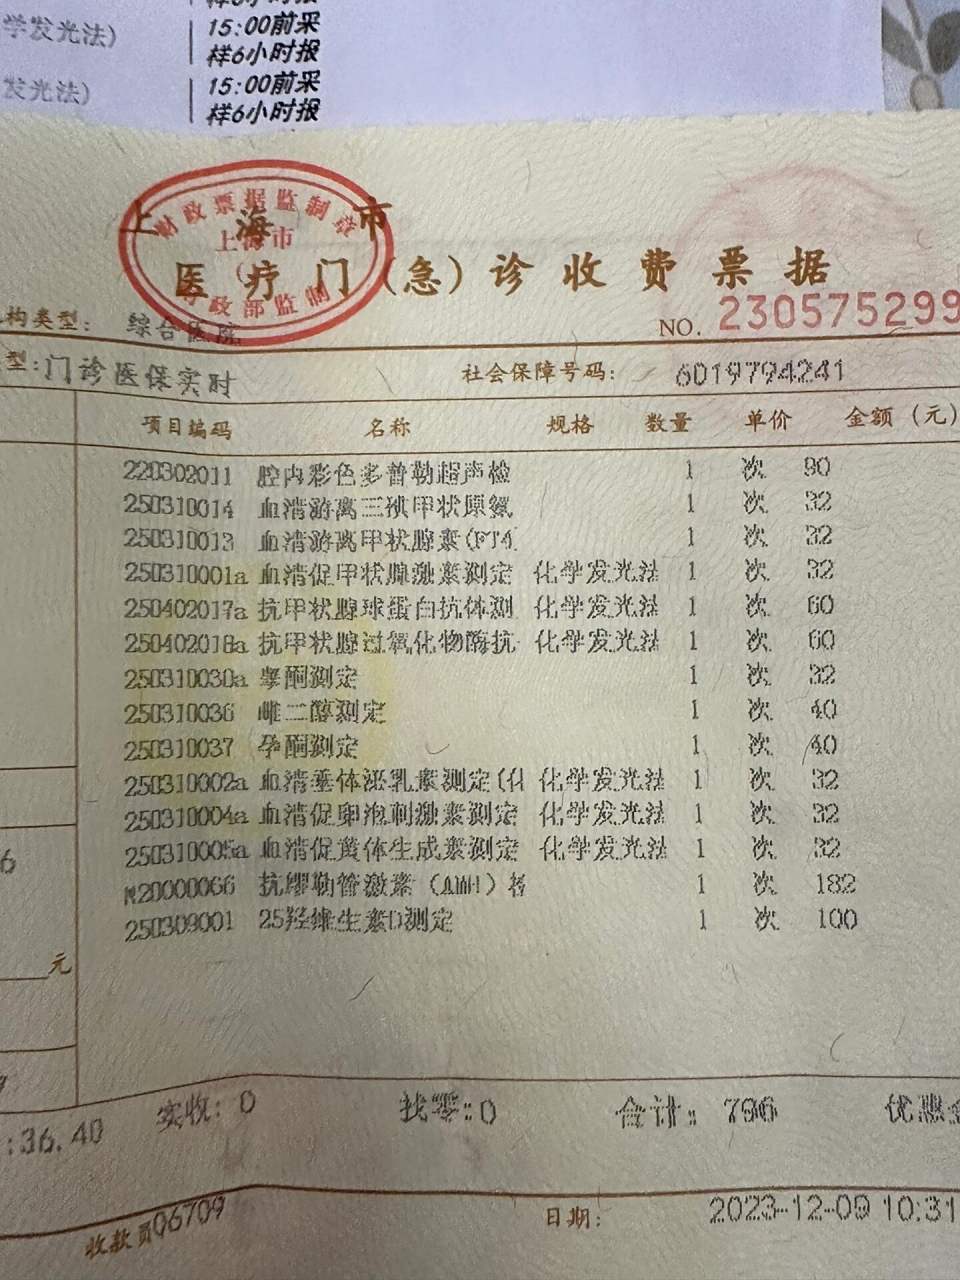 学发光法) 15:00前采
样6小时报
发光法) 15:00前采
样6小时报
上海市
财政票据监制章
上海市
财政部监制
医疗门(急)诊收费票据
构类型: 综合医院 NO. 230575299
型:门诊医保实时 社会保障号码: 6019794241
项目编码 名称 规格 数量 单价 金额(元)
220302011 腔内彩色多普勒超声检 1 次 90
250310014 血清游离三碘甲状原氨 1 次 32
250310013 血清游离甲状腺素(FT4) 1 次 32
250310001a 血清促甲状腺激素测定 化学发光法 1 次 32
250402017a 抗甲状腺球蛋白抗体测 化学发光法 1 次 60
250402018a 抗甲状腺过氧化物酶抗 化学发光法 1 次 60
250310030a 睾酮测定 1 次 32
250310036 雌二醇测定 1 次 40
250310037 孕酮测定 1 次 40
250310002a 血清垂体泌乳素测定(化 化学发光法 1 次 32
250310004a 血清促卵泡刺激素测定 化学发光法 1 次 32
250310005a 血清促黄体生成素测定 化学发光法 1 次 32
N20000066 抗缪勒管激素(AMH)检 1 次 182
250309001 25羟维生素D测定 1 次 100
6
元
:36.40 实收: 0 找零:0 合计: 796 优惠金
收款员06709 日期: 2023-12-09 10:31